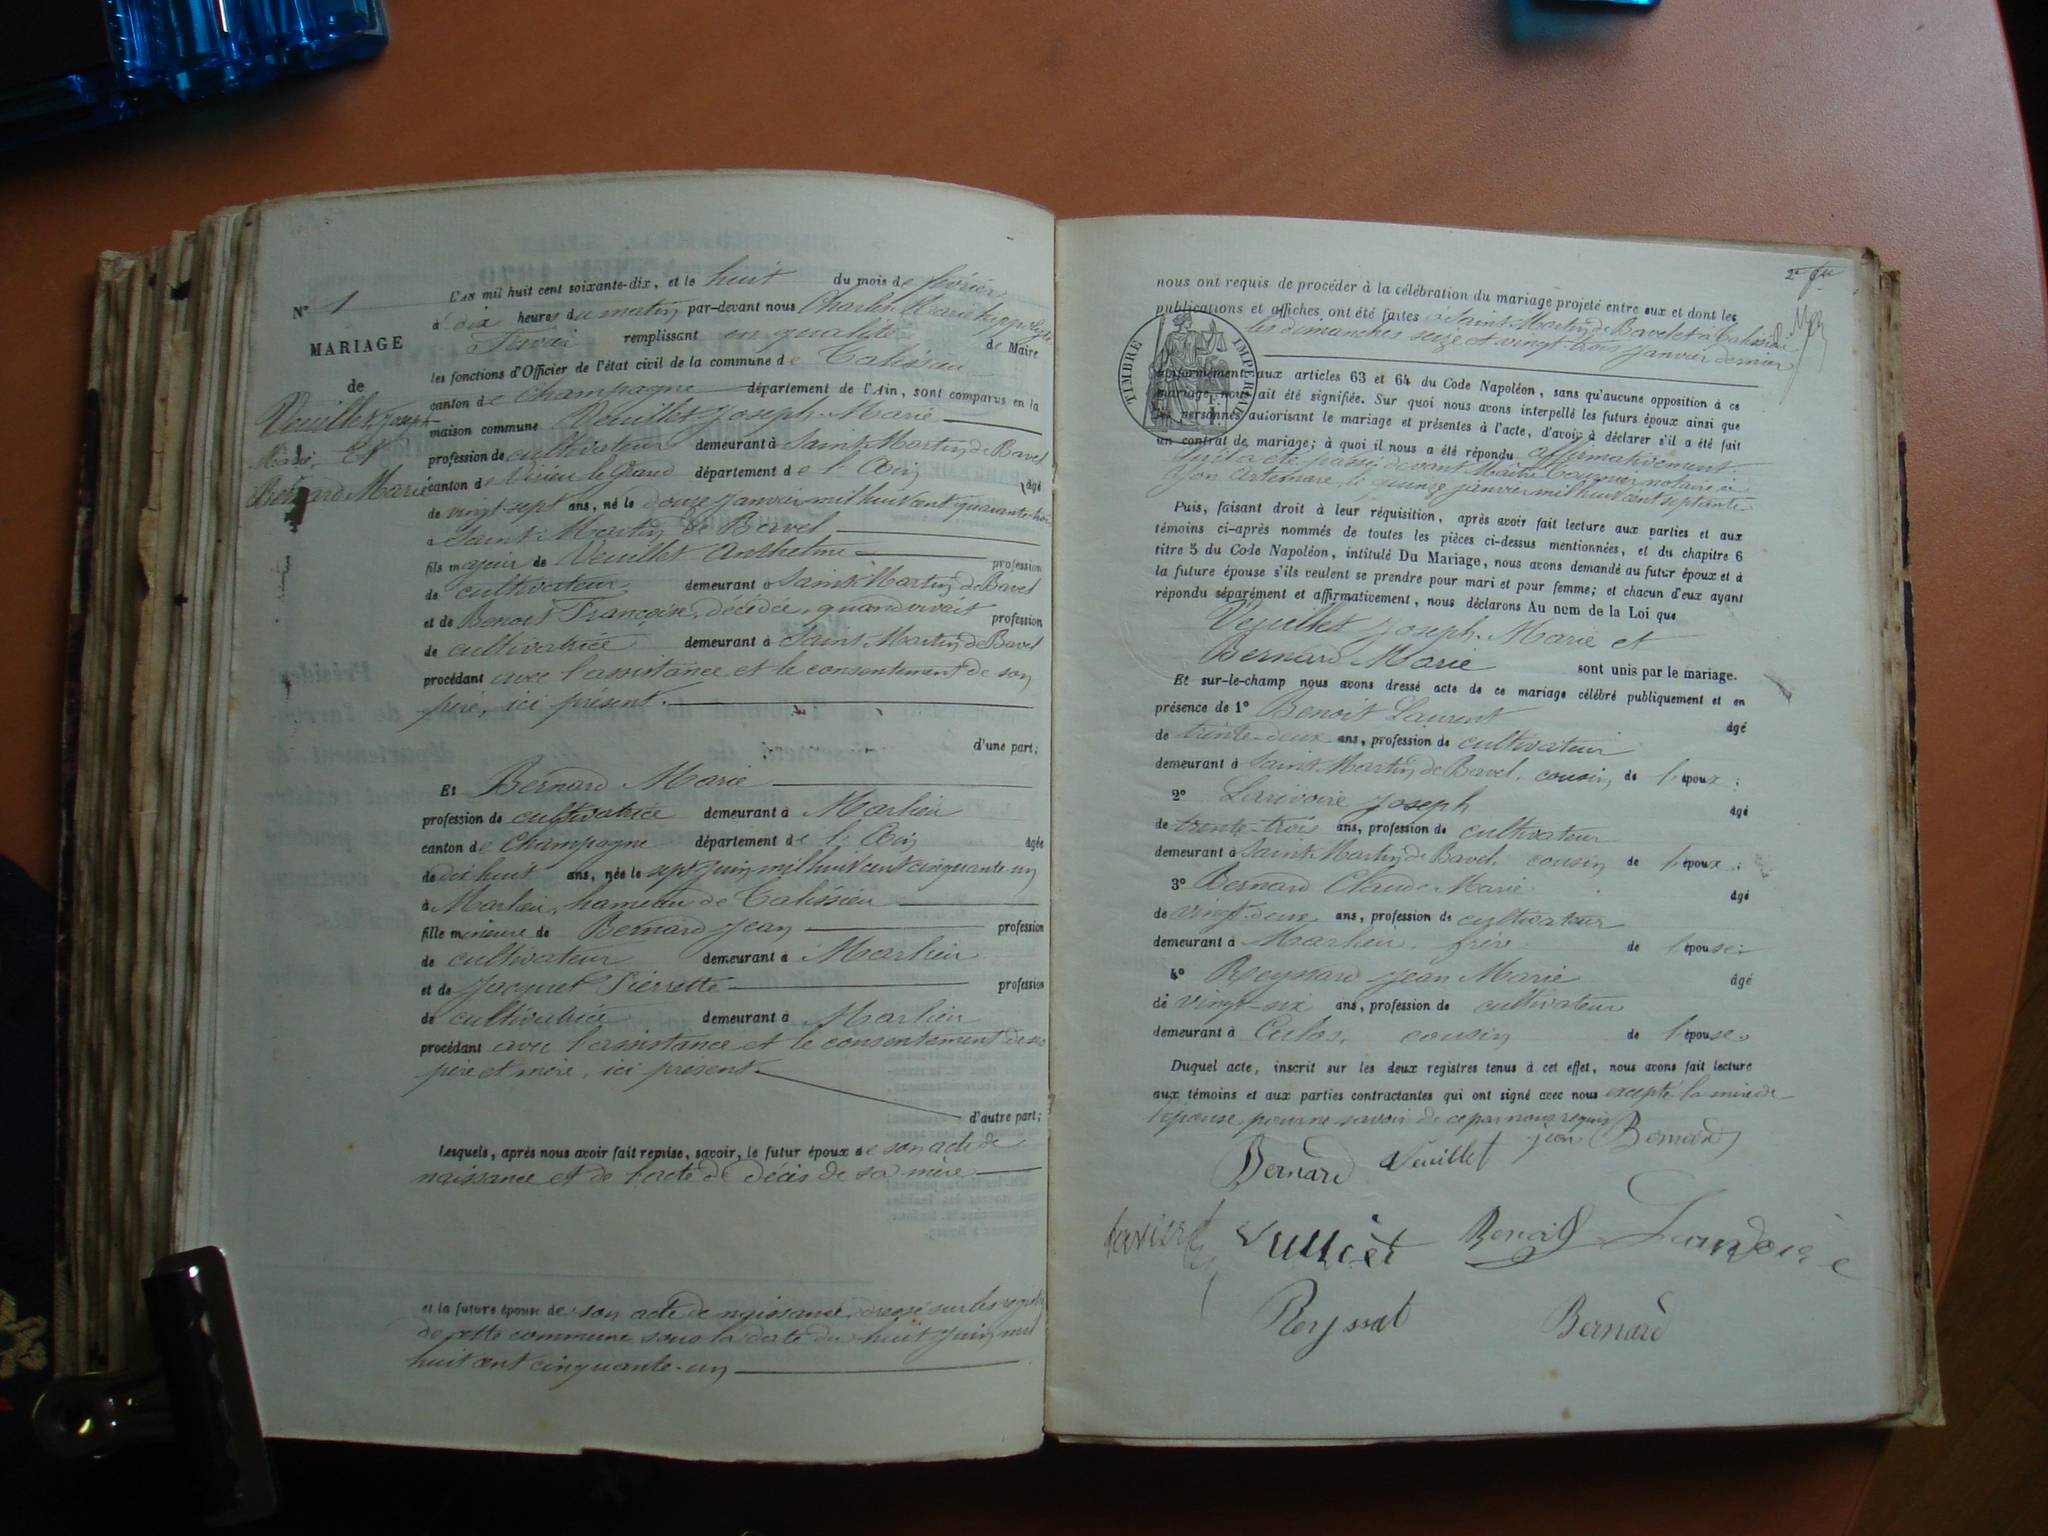 N° 1
MARIAGE
de
Veuillet Joseph
Marie, Et
Bernard Marie
L'AN mil huit cent soixante-dix, et le huit du mois de février
à dix heures du matin par-devant nous Charles Marie hippolyte
remplissant en qualité de Maire
les fonctions d'Officier de l'état civil de la commune de Talissieu
canton de Champagne département de l'Ain, sont comparus en la
maison commune Veuillet Joseph-Marie
profession de cultivateur demeurant à Saint Martin de Bavel
canton de Virieu le Grand département de l'Ain âgé
de vingt sept ans, né le douze janvier mil huit cent quarante-trois
à Saint Martin de Bavel
fils majeur de Veuillet Anthelme profession
de cultivateur demeurant à Saint Martin de Bavel
et de Benoit Françoise, décédée, quand vivait profession
de cultivatrice demeurant à Saint Martin de Bavel
procédant avec l'assistance et le consentement de son
père, ici présent.
d'une part;
Et Bernard Marie
profession de cultivatrice demeurant à Marlieu
canton de Champagne département de l'Ain âgée
de dix huit ans, née le sept juin mil huit cent cinquante-un
à Marlieu, hameau de Talissieu
fille mineure de Bernard Jean profession
de cultivateur demeurant à Marlieu
et de Jacquet Pierrette profession
de cultivatrice demeurant à Marlieu
procédant avec l'assistance et le consentement de ses
père et mère, ici présent.
d'autre part;
Lesquels, après nous avoir fait remise, savoir, le futur époux de son acte de
naissance et de l'acte de décès de sa mère
et la future épouse de son acte de naissance dressé sur les registres
de cette commune sous la date du huit juin mil
huit cent cinquante-un
nous ont requis de procéder à la célébration du mariage projeté entre eux et dont les
publications et affiches ont été faites à Saint Martin de Bavel et à Talissieu
les dimanches seize et vingt trois janvier dernier
TIMBRE IMPÉRIAL
conformément aux articles 63 et 64 du Code Napoléon, sans qu'aucune opposition à ce
mariage nous ait été signifiée. Sur quoi nous avons interpellé les futurs époux ainsi que
les personnes autorisant le mariage et présentes à l'acte, d'avoir à déclarer s'il a été fait
un contrat de mariage; à quoi il nous a été répondu affirmativement.
qu'il a été passé devant Maître notaire à
Yon Artemare, le quinze janvier mil huit cent septante
Puis, faisant droit à leur réquisition, après avoir fait lecture aux parties et aux
témoins ci-après nommés de toutes les pièces ci-dessus mentionnées, et du chapitre 6
titre 5 du Code Napoléon, intitulé Du Mariage, nous avons demandé au futur époux et à
la future épouse s'ils veulent se prendre pour mari et pour femme; et chacun d'eux ayant
répondu séparément et affirmativement, nous déclarons Au nom de la Loi que
Veuillet Joseph-Marie et
Bernard Marie sont unis par le mariage.
Et sur-le-champ nous avons dressé acte de ce mariage célébré publiquement et en
présence de 1° Benoit Laurent âgé
de trente-deux ans, profession de cultivateur
demeurant à Saint Martin de Bavel, cousin de l'époux;
2° Larivoire Joseph âgé
de trente-trois ans, profession de cultivateur
demeurant à Saint Martin de Bavel, cousin de l'époux;
3° Bernard Claude Marie âgé
de vingt-deux ans, profession de cultivateur
demeurant à Marlieu, frère de l'épouse;
4° Reyssard Jean Marie âgé
de vingt-six ans, profession de cultivateur
demeurant à Culoz, cousin de l'épouse.
Duquel acte, inscrit sur les deux registres tenus à cet effet, nous avons fait lecture
aux témoins et aux parties contractantes qui ont signé avec nous excepté la mère de
l'épouse pour ne savoir de ce par nous requis
jean Bernard
Bernard Veuillet
Vulliet Benoit Larivoire
Bernard